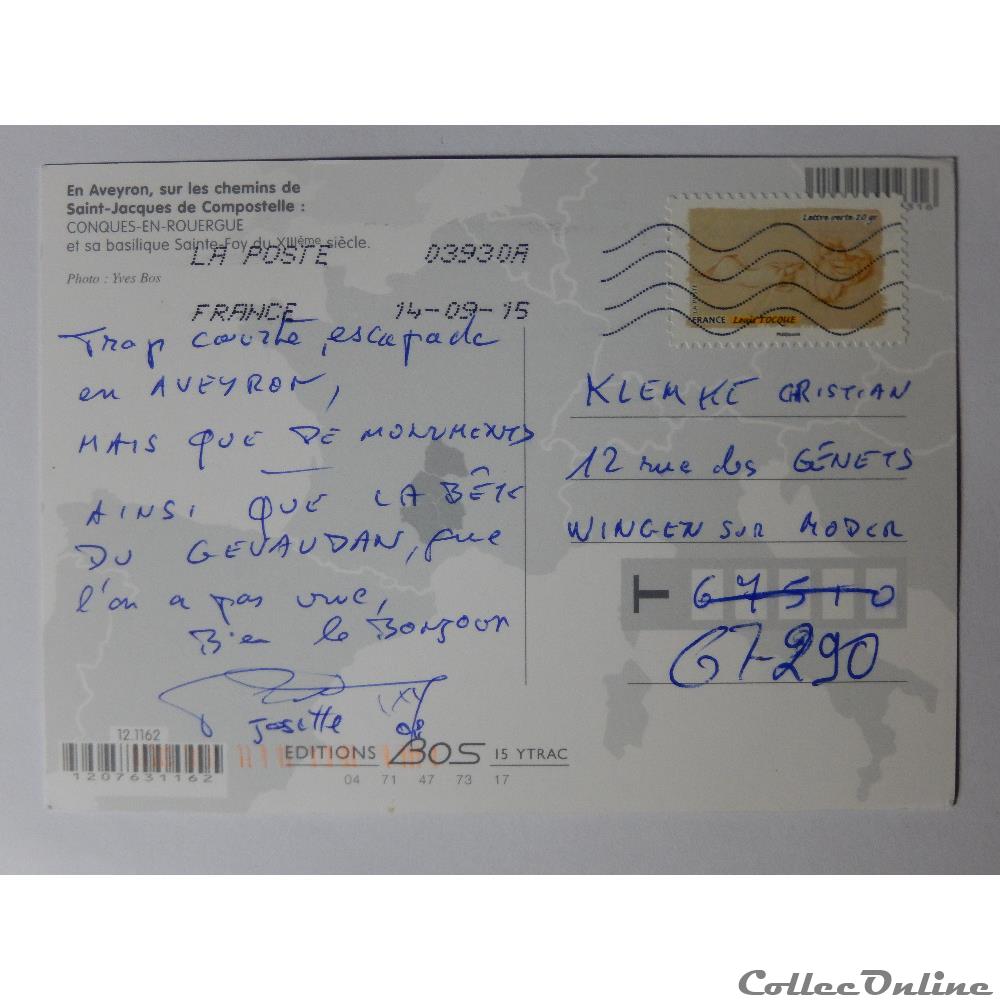 En Aveyron, sur les chemins de
Saint-Jacques de Compostelle :
CONQUES-EN-ROUERGUE
et sa basilique Sainte-Foy du XIIIème siècle.
Photo : Yves Bos
LA POSTE 03930A
FRANCE 14-09-15
Lettre verte 20 gr
FRANCE Louis TOCQUE
Trop courte escapade
en AVEYRON,
MAIS QUE DE MONUMENTS
AINSI QUE LA BÊTE
DU GEVAUDAN, que
l'on a pas vue,
Bien le BONJOUR
Josette
KLEMKE CRISTIAN
12 rue des GÊNETS
WINGEN SUR MODER
67510
67290
12.1162
1207631162
EDITIONS BOS 15 YTRAC
04 71 47 73 17
CollecOnline